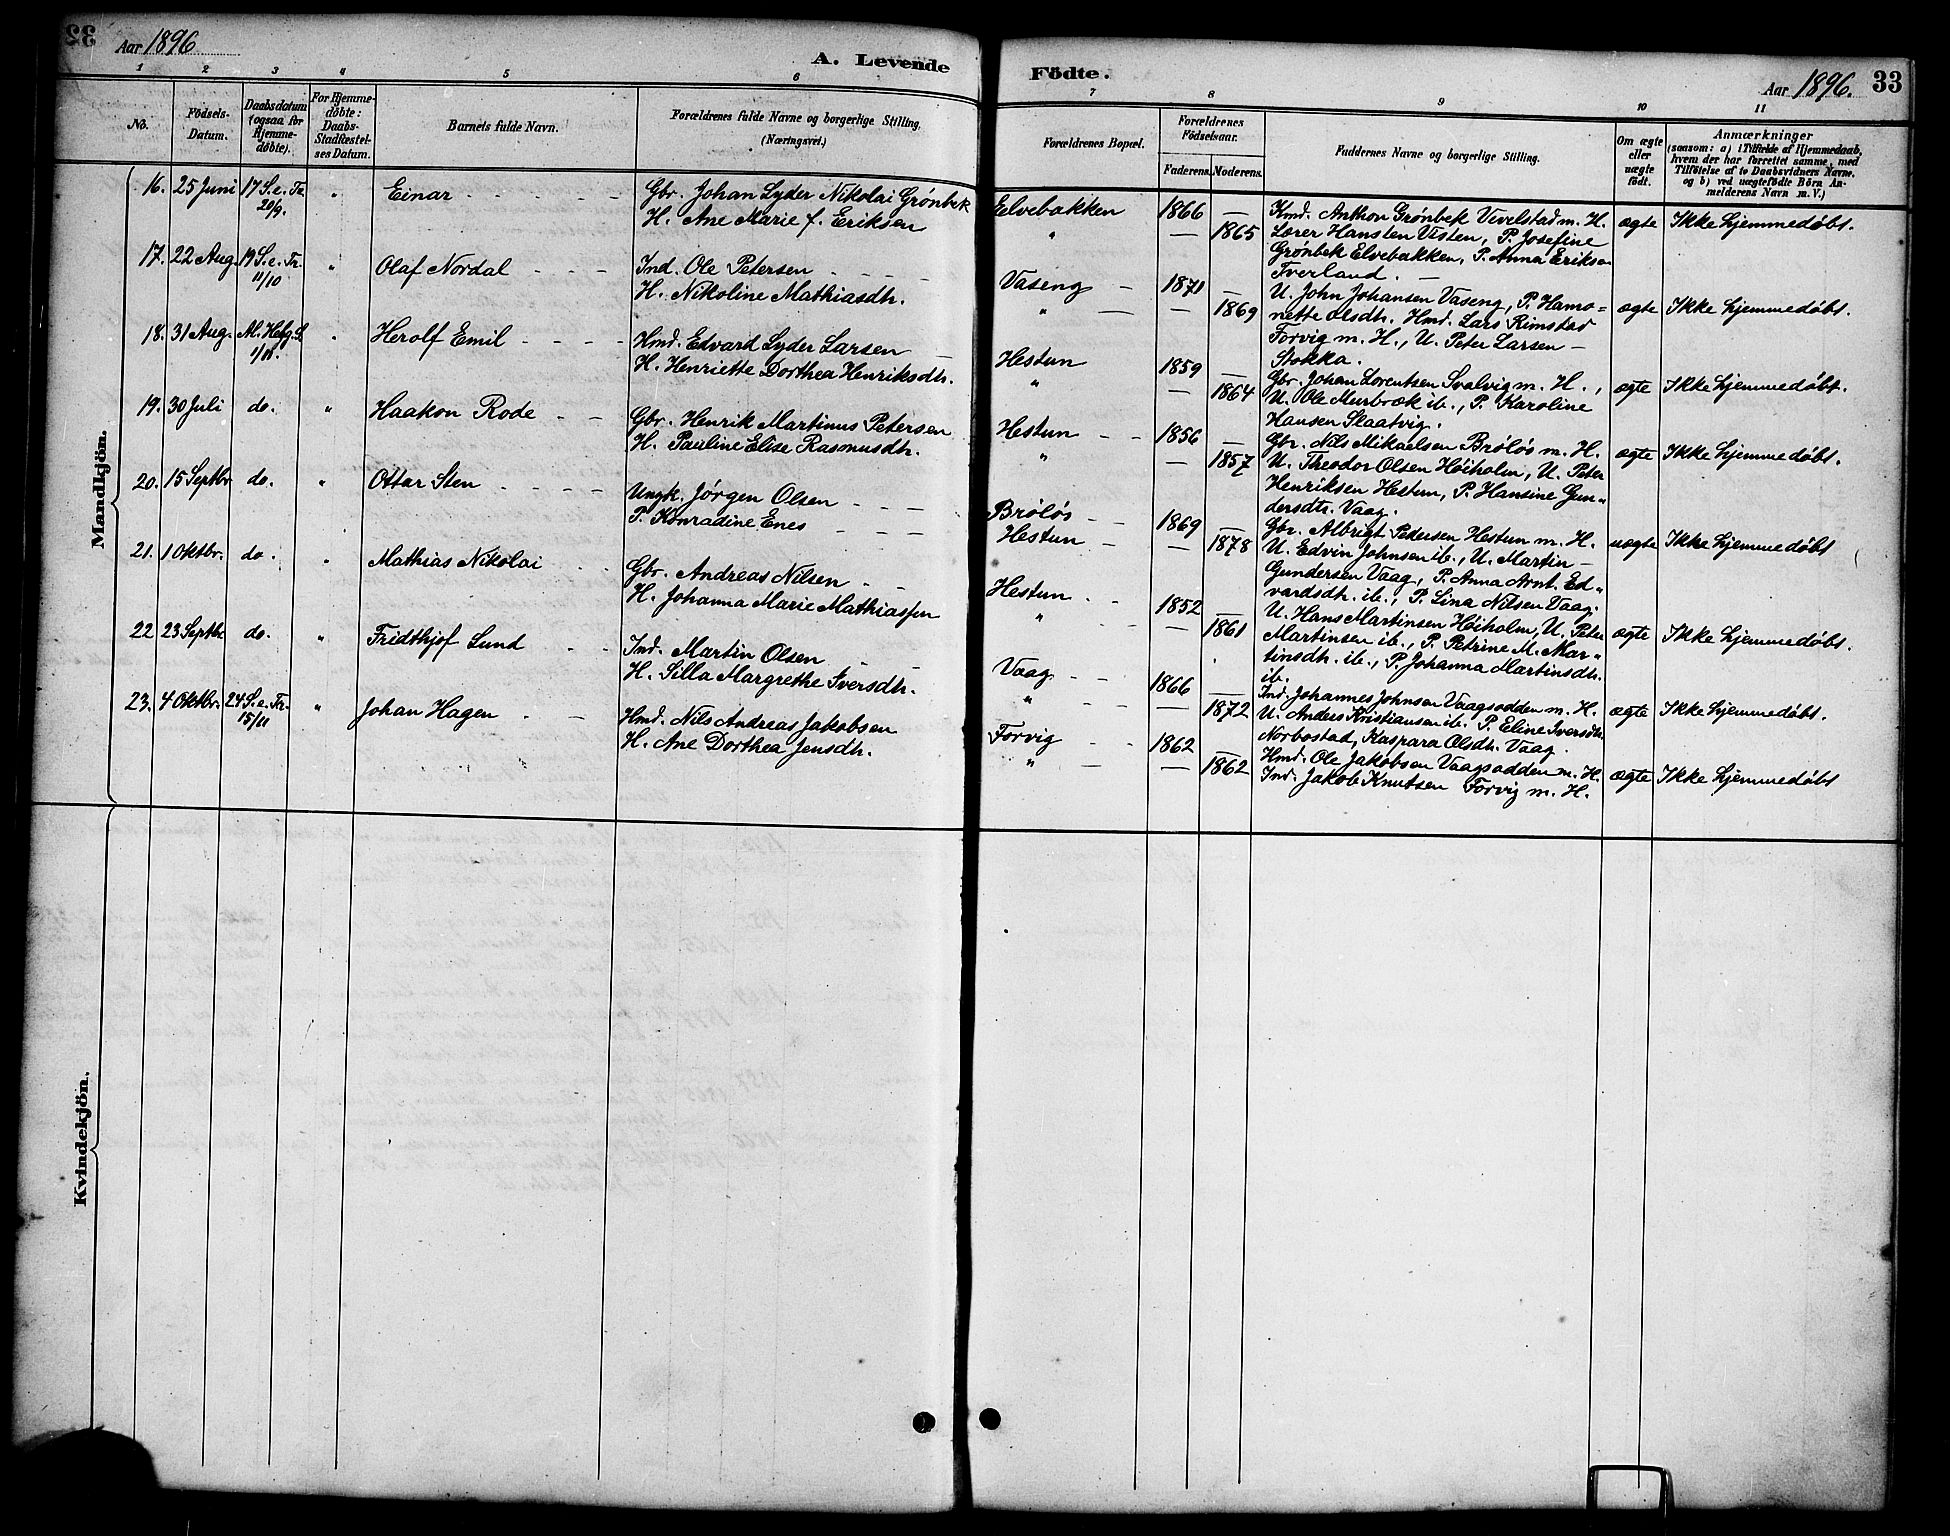 Aar 1896
A. Levende
Födte.
Aar 1896.
33
1 2 3 4 5 6 7 8 9 10 11
No.
Födsels-Datum.
Daabsdatum (ogsaa for Hjemme-döbte).
For Hjemme-döbte: Daabs-Stadfæstel-ses Datum.
Barnets fulde Navn.
Forældrenes fulde Navne og borgerlige Stilling. (Næringsvei.)
Forældrenes Bopæl.
Forældrenes Födselsaar.
Faderens. Moderens.
Faddernes Navne og borgerlige Stilling.
Om ægte eller uægte födt.
Anmærkninger
(saasom: a) i Tilfælde af Hjemmedaab,
hvem der har forrettet samme, med
Tilföielse af to Daabsvidners Navne,
og b) ved uægtefödte Börn An-
melderens Navn m. V.)
Mandkjön.
16. 25 Juni 17 S. e. Tr. 20/9. " Einar
Gbr. Johan Lyder Nikolai Grønbek
H. Ane Marie f. Eriksen
Elvebakken 1866 —
" — 1865
Kmd. Anthon Grønbek Vevelstad m. H.
Lærer Hansten Visten, P. Josefine
Grønbek Elvebakken, P. Anna Eriksen
Tverland. —
ægte Ikke hjemmedøbt.
17. 22 Aug. 19 S. e. Tr. 11/10 " Olaf Nordal
Ind. Ole Petersen
H. Nikoline Mathiasdtr.
Vaseng 1871 —
" — 1869
U. John Johansen Vaseng, P. Hamo-
nette Olsdtr. Hmd. Lars Rimstad
Forvig m. H., U. Peter Larsen —
Stokka.
ægte Ikke hjemmedøbt.
18. 31 Aug. Al. Helg. S. 1/11. " Herolf Emil
Hmd. Edvard Lyder Larsen
H. Henriette Dorthea Henriksdtr.
Hestun 1859 —
" — 1864
Gbr. Johan Lorentsen Svalvig m. H.,
U. Ole Murbræk ib., P. Karoline
Hansen Slaatvig.
ægte Ikke hjemmedøbt.
19. 30 Juli do. " Haakon Rode
Gbr. Henrik Martinus Petersen
H. Pauline Elise Rasmusdtr.
Hestun 1856 —
" — 1857
Gbr. Nils Mikaelsen Brøløs m. H.
U. Theodor Olsen Høiholm, U. Peter
Henriksen Hestun, P. Hansine Gun-
dersdtr. Vaag.
ægte Ikke hjemmedøbt.
20. 15 Septbr. do. " Ottar Sten
Ungk. Jørgen Olsen
P. Konradine Enes
Brøløs 1869 —
Hestun — 1878
Gbr. Albrigt Pedersen Hestun m. H.
U. Edvin Johnsen ib., U. Martin —
Gundersen Vaag, P. Anna Arnt. Ed-
vardsdtr. ib., P. Lina Nilsen Vaag.
uægte Ikke hjemmedøbt
21. 1 Oktbr. do. " Mathias Nikolai
Gbr. Andreas Nilsen
H. Johanna Marie Mathiassen
Hestun 1852
" — 1861
U. Hans Martinsen Høiholm, U. Peter
Martinsen ib., P. Petrine M. Mar-
tinsdtr. ib., P. Johanna Martinsdtr.
ib.
ægte Ikke hjemmedøbt.
22 23 Septbr do. " Fridthjof Lund
Ind. Martin Olsen
H. Silla Margrethe Iversdtr.
Vaag 1866 —
" — 1872
Ind. Johannes Johnsen Vaagsodden m. H.
U. Anders Kristiansen ib. P. Eline Iversdtr.
Norbostad, Kaspara Olsdtr. Vaag.
ægte Ikke hjemmedøbt.
23. 4 Oktbr. 24 S. e. Tr. 15/11 " Johan Hagen
Hmd. Nils Andreas Jakobsen
H. Ane Dorthea Jensdtr.
Forvig 1862 —
" — 1862
Hmd. Ole Jakobsen Vaagsodden m. H.
Ind. Jakob Knutsen Forvig m. H.
ægte Ikke hjemmedøbt
Kvindekjön.